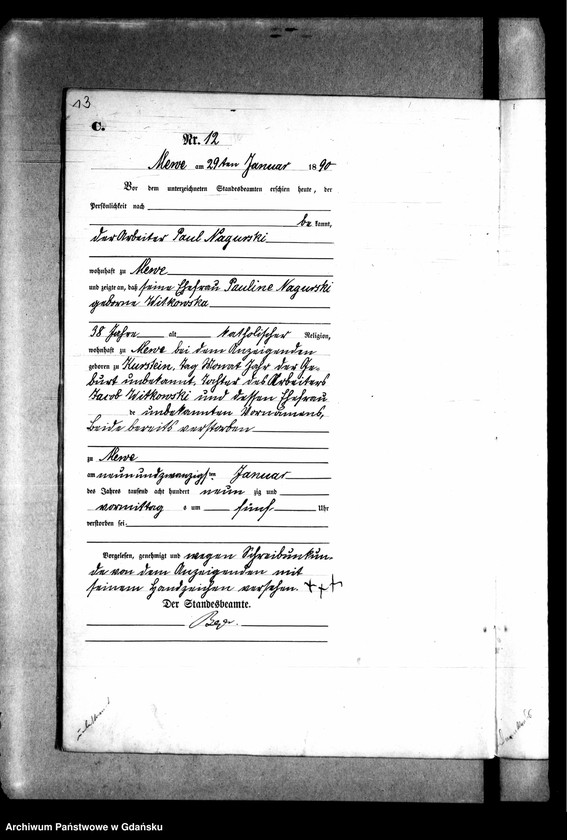 13
C.
Nr. 12
Mewe am 29ten Januar 1890
Vor dem unterzeichneten Standesbeamten erschien heute, der
Persönlichkeit nach
be kannt,
der Arbeiter Paul Nagurski
wohnhaft zu Mewe
und zeigte an, daß seine Ehefrau Pauline Nagurski
geborne Witkowska
38 Jahre alt katholischer Religion,
wohnhaft zu Mewe bei dem Anzeigenden
geboren zu Kurstein, Tag Monat Jahr der Ge-
burt unbekannt, Tochter des Arbeiters
Jacob Witkowski und dessen Ehefrau
de unbekannten Vornamens,
beide bereits verstorben
zu Mewe
am neunundzwanzigsten Januar
des Jahres tausend acht hundert neun zig und
vormittag s um fünf Uhr
verstorben sei.
Vorgelesen, genehmigt und wegen Schreibunkun-
de von dem Anzeigenden mit
seinem Handzeichen versehen. +++
Der Standesbeamte.
Archiwum Państwowe w Gdańsku